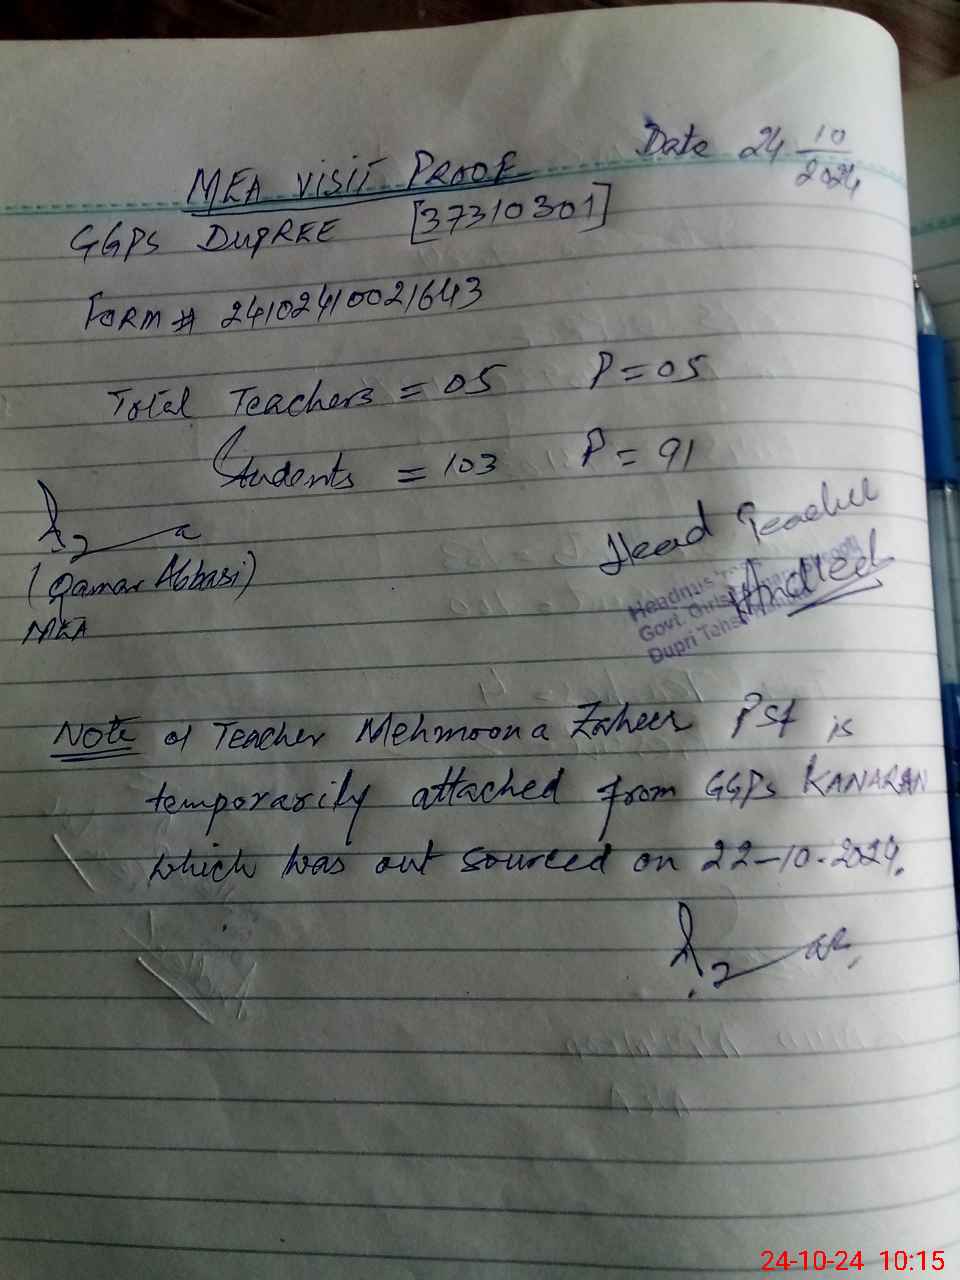 Date 24 10/2024
MEA VISIT PROOF
GGPS DUPREE [37310301]
Form # 24102410021643
Total Teachers = 05 P = 05
Students = 103 P = 91
(Qamar Abbasi)
MEA
Head Teacher
Govt. Girls
Dupri
Note Teacher Mehmoona Zaheer PST is
temporarily attached from GGPS KANARAN
which was out sourced on 22-10-2024.
24-10-24 10:15